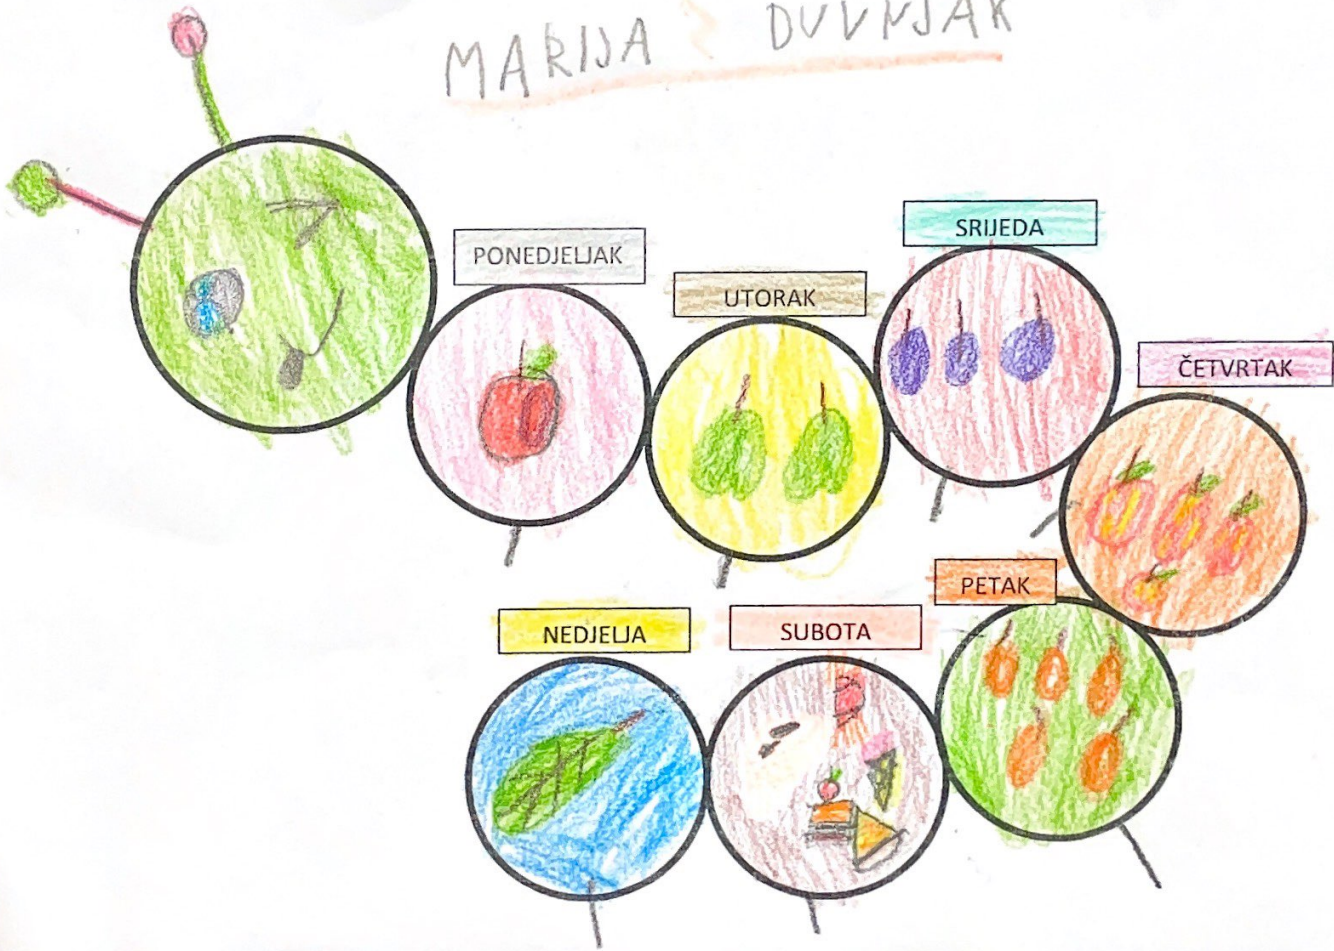 MARIJA DUVNJAK
PONEDJELJAK
UTORAK
SRIJEDA
ČETVRTAK
PETAK
SUBOTA
NEDJELJA